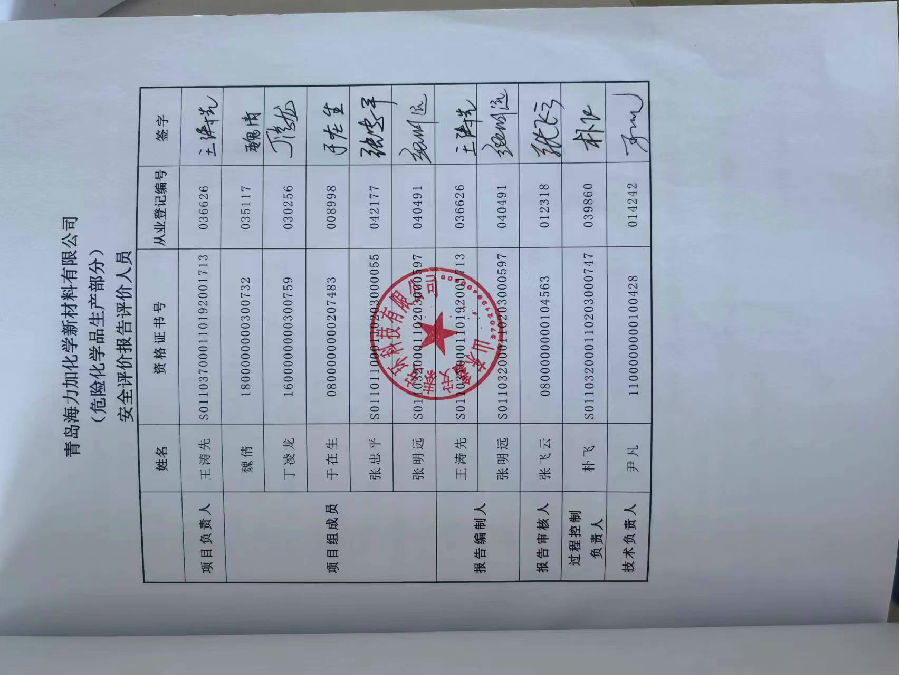 青岛海力加化学新材料有限公司
（危险化学品生产部分）
安全评价报告评价人员
姓名 资格证书号 从业登记编号 签字
项目负责人 王涛先 S011037000110192001713 036626 王涛先
项目组成员 魏倩 1800000000300732 035117 魏倩
丁凌龙 1600000000300759 030256 丁凌龙
于在生 0800000000207483 008998 于在生
张忠平 S011011000110203000055 042177 张忠平
张明远 S011032000110203000597 040491 张明远
报告编制人 王涛先 S011037000110192001713 036626 王涛先
张明远 S011032000110203000597 040491 张明远
报告审核人 张飞云 0800000000104563 012318 张飞云
过程控制
负责人 朴飞 S011032000110203000747 039860 朴飞
技术负责人 尹凡 1100000000100428 014242